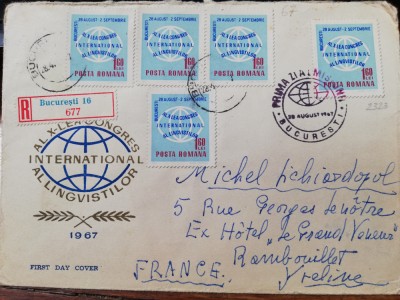 67
BUCUREȘTI 28 AUGUST-2 SEPTEMBRIE
AL X-LEA CONGRES
INTERNATIONAL
AL LINGVISTILOR
1,60 LEI
POSTA ROMANA
28 AUGUST-2 SEPTEMBRIE
AL X-LEA CONGRES
INTERNATIONAL
AL LINGVISTILOR
1,60 LEI
POSTA ROMANA
28 AUGUST-2 SEPTEMBRIE
AL X-LEA CONGRES
INTERNATIONAL
AL LINGVISTILOR
1,60 LEI
POSTA ROMANA
28 AUGUST-2 SEPTEMBRIE
AL X-LEA CONGRES
INTERNATIONAL
AL LINGVISTILOR
1,60 LEI
POSTA ROMANA
28 AUGUST-2 SEPTEMBRIE
AL X-LEA CONGRES
INTERNATIONAL
AL LINGVISTILOR
1,60 LEI
POSTA ROMANA
PRIMA ZI A EMISIUNII
28 AUGUST 1967
BUCUREȘTI
R
București 16
677
AL X-LEA CONGRES
INTERNATIONAL
AL LINGVISTILOR
1967
FIRST DAY COVER
Michel
5 Rue Georges Lenôtre
Ex Hôtel „Le Grand Veneur"
Rambouillet
FRANCE. Yveline